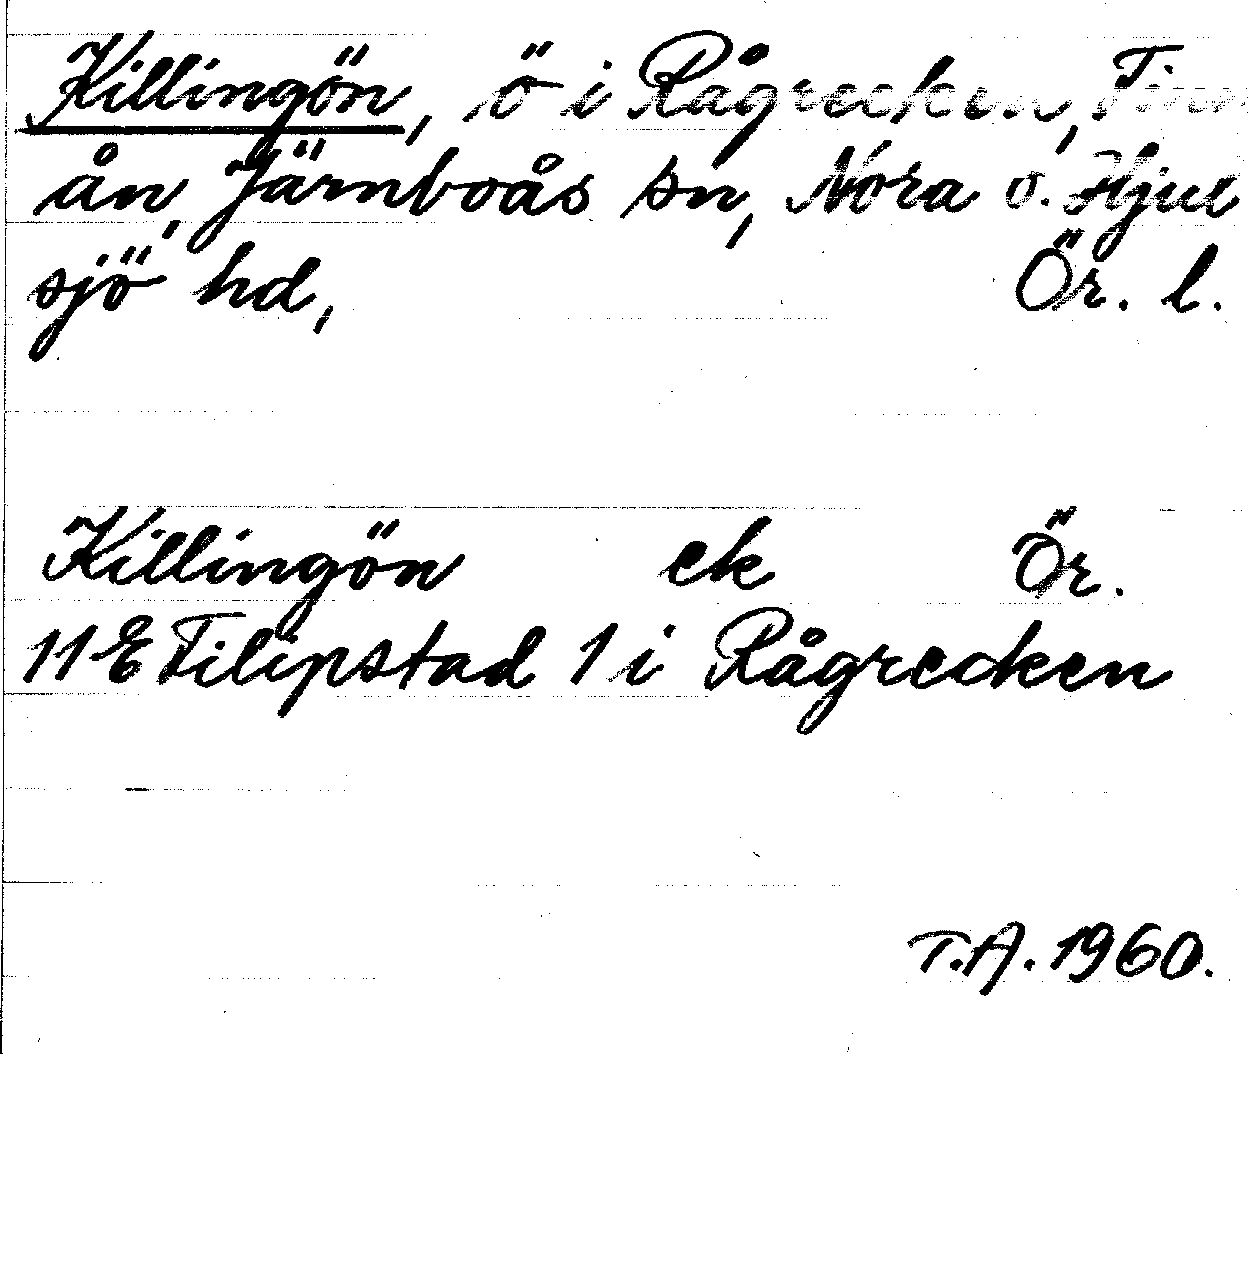 Killingön, ö i Rågrecken, Finn
ån, Järnboås sn, Nora o. Hjul
sjö hd, Ör. l.
Killingön ek Ör.
11 E Filipstad 1 i Rågrecken
T.A. 1960.